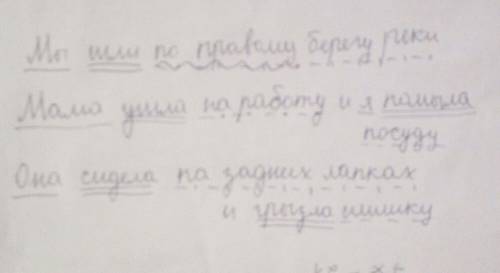 Мы шли по правому берегу реки
Мама ушла на работу и я помыла
посуду
Она сидела на задних лапках
и грызла шишку